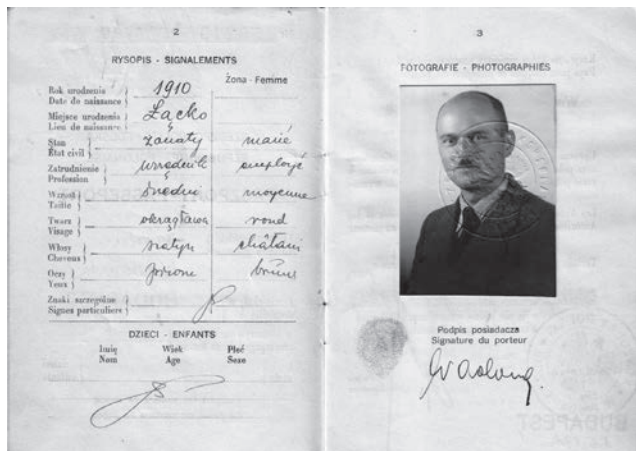 2
RYSOPIS - SIGNALEMENTS
Żona - Femme
Rok urodzenia
Date de naissance
1910
Miejsce urodzenia
Lieu de naissance
Łącko
Stan
État civil
żonaty marié
Zatrudnienie
Profession
urzędnik employé
Wzrost
Taille
średni moyenne
Twarz
Visage
okrągława rond
Włosy
Cheveux
szatyn châtain
Oczy
Yeux
piwne
Znaki szczególne
Signes particuliers
DZIECI - ENFANTS
Imię Wiek Płeć
Nom Age Sexe
3
FOTOGRAFIE - PHOTOGRAPHIES
Podpis posiadacza
Signature du porteur
BUDAPEST